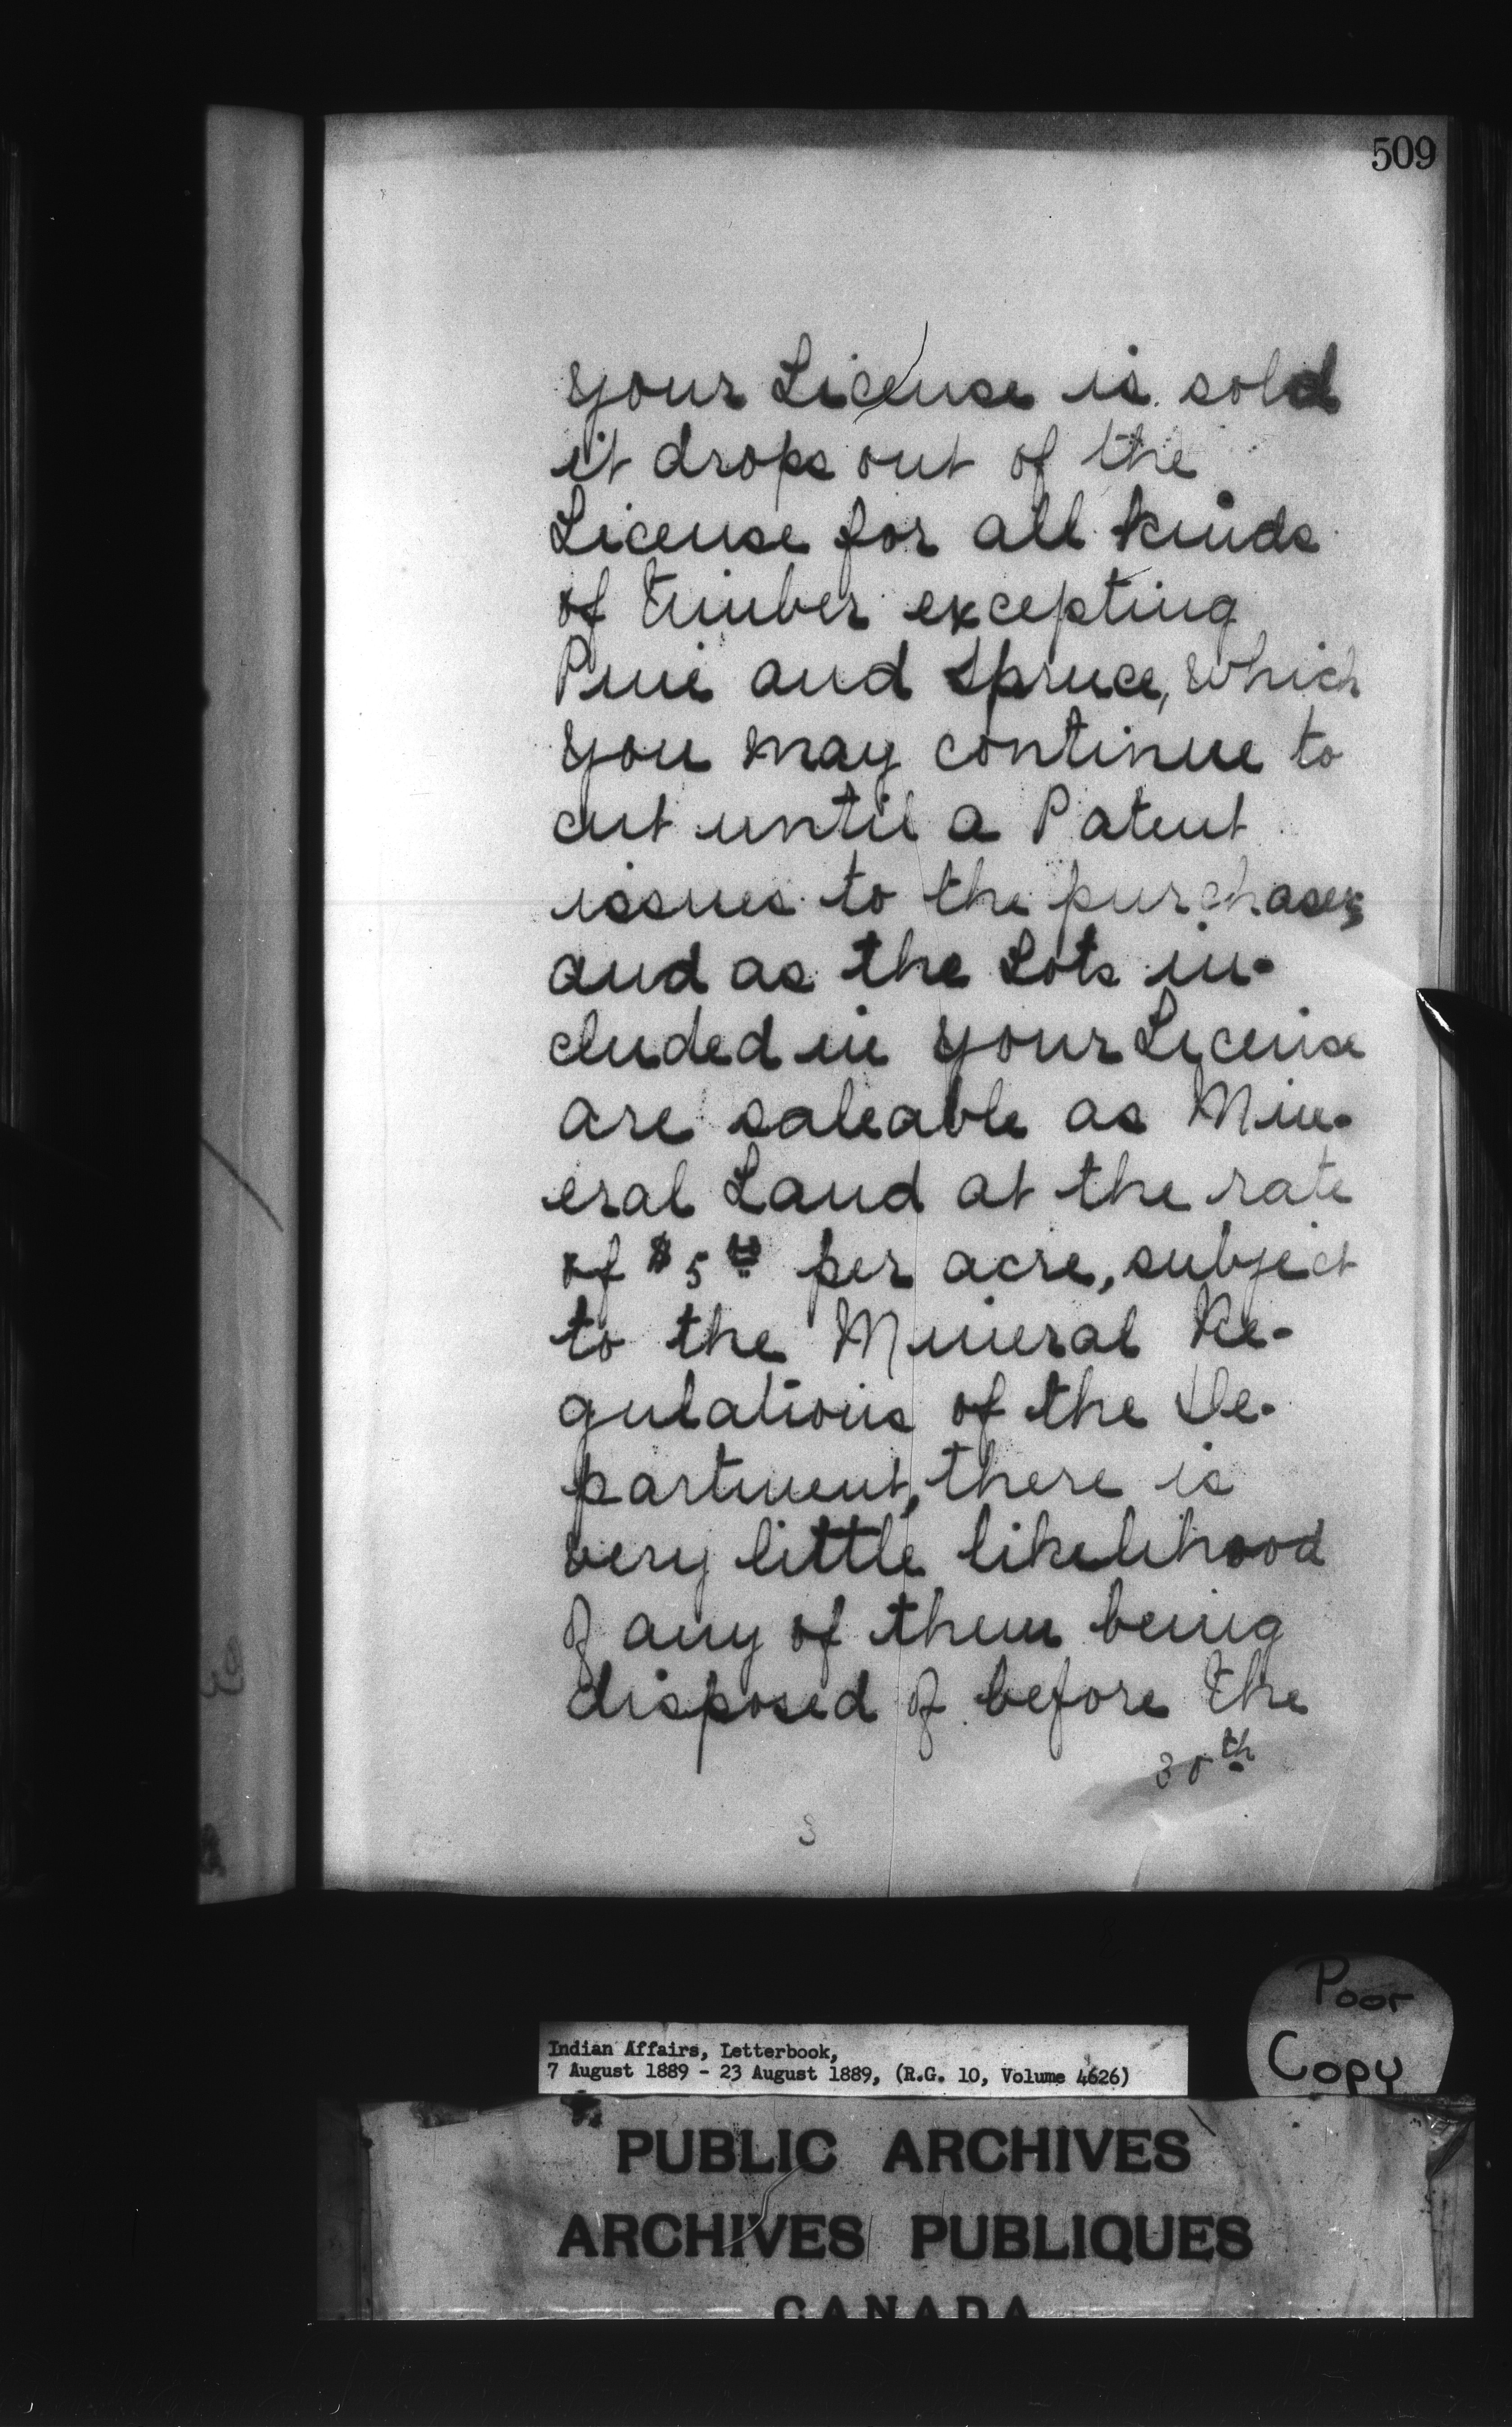 509
your License is sold
it drops out of the
License for all kinds
of timber excepting
Pine and Spruce, which
you may continue to
cut until a Patent
issues to the purchaser;
and as the Lots in-
cluded in your License
are saleable as Min-
eral Land at the rate
of $5 00 per acre, subject
to the Mineral Re-
gulations of the De-
partment, there is
very little likelihood
of any of them being
disposed of before the
30th
Poor
Copy
Indian Affairs, Letterbook,
7 August 1889 - 23 August 1889, (R.G. 10, Volume 4626)
PUBLIC ARCHIVES
ARCHIVES PUBLIQUES
CANADA